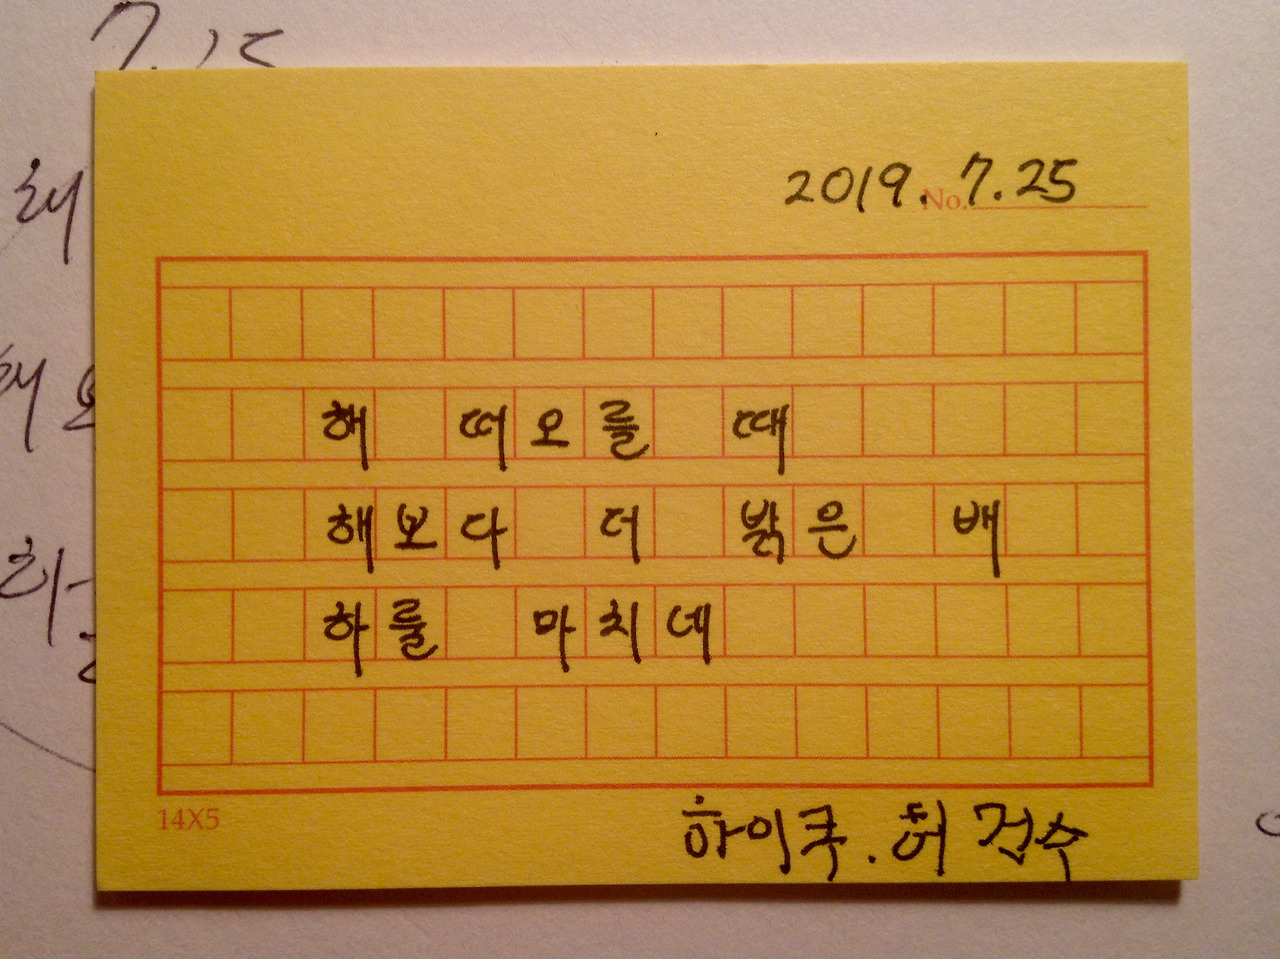 7.25
2019.7.25
No.
해 떠오를 때
해보다 더 밝은 배
하룰 마치네
14X5
하이쿠. 허건수